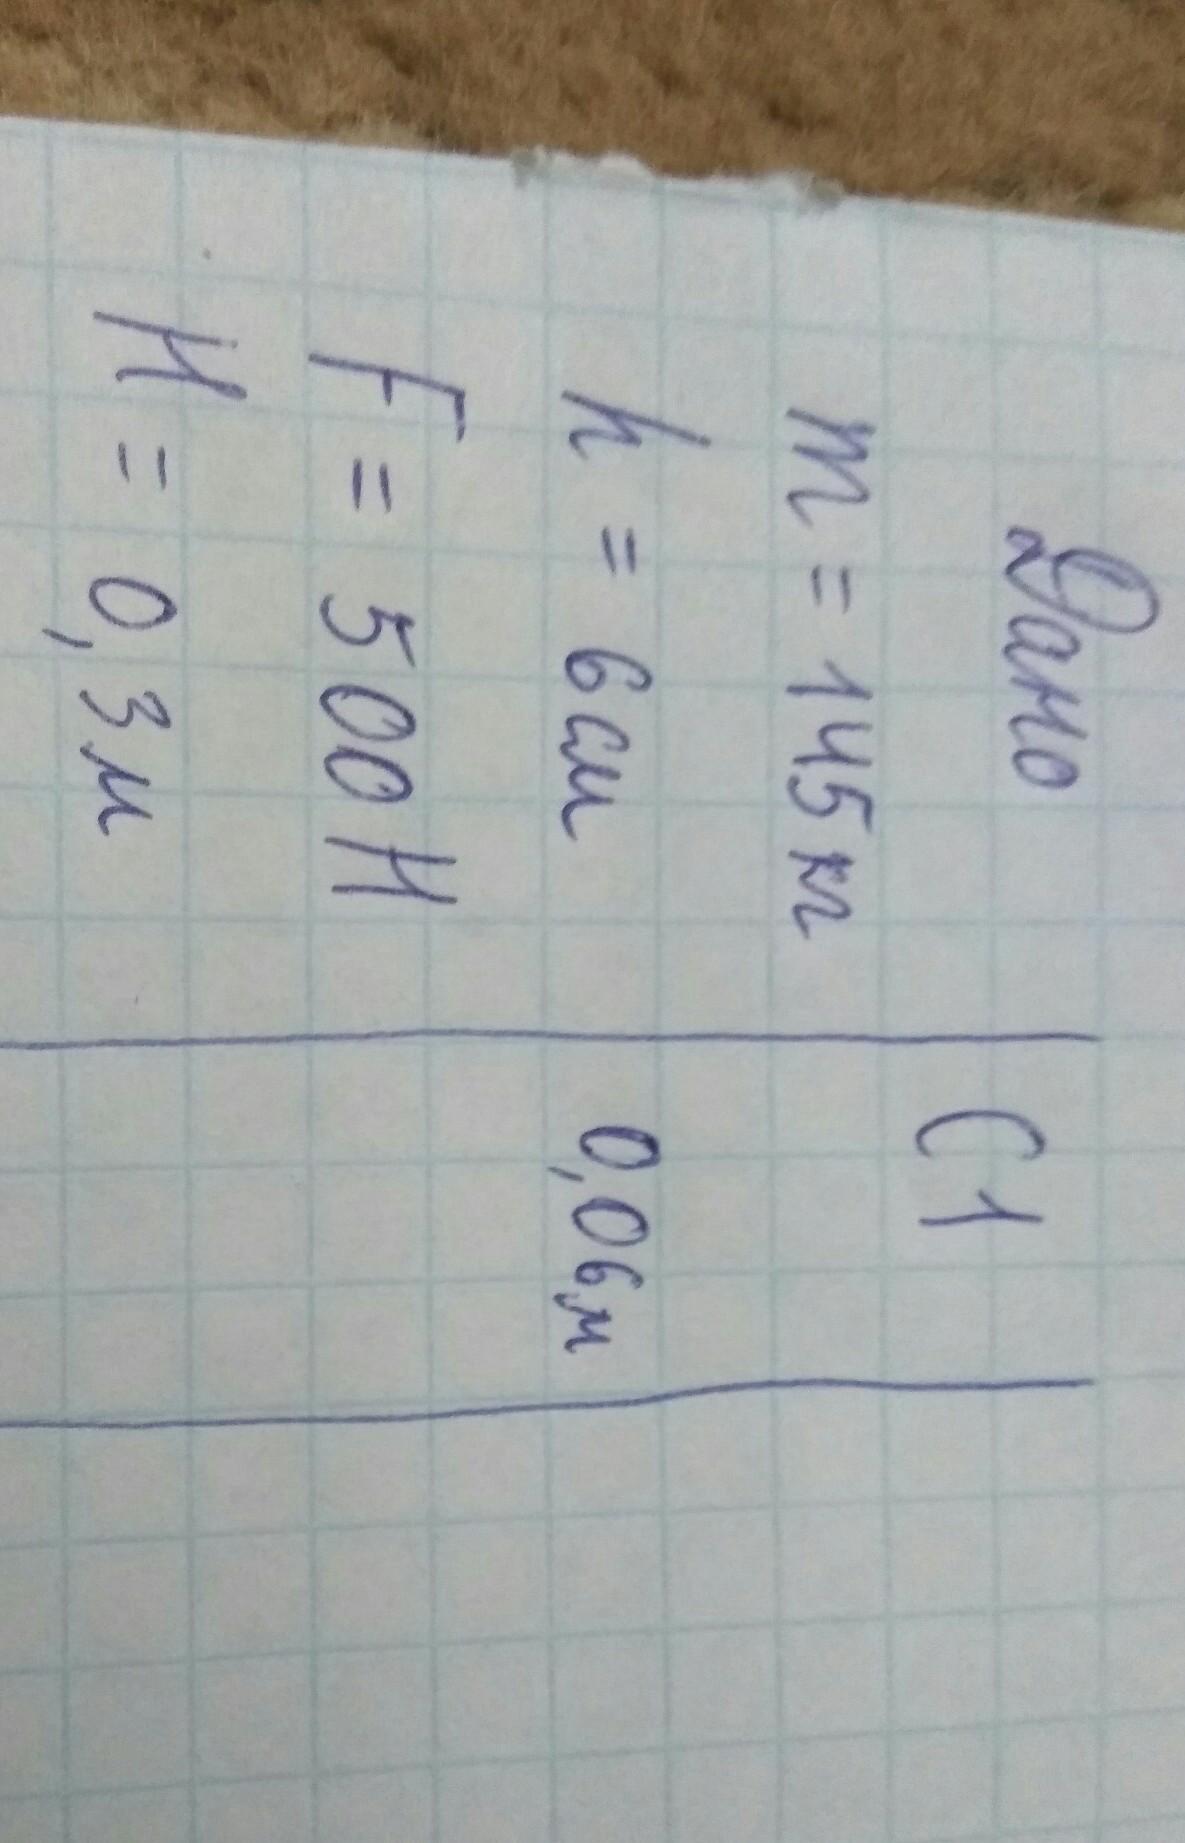 Дано
С1
m = 145 кг
h = 6 см
0,06 м
F = 500 Н
H = 0,3 м